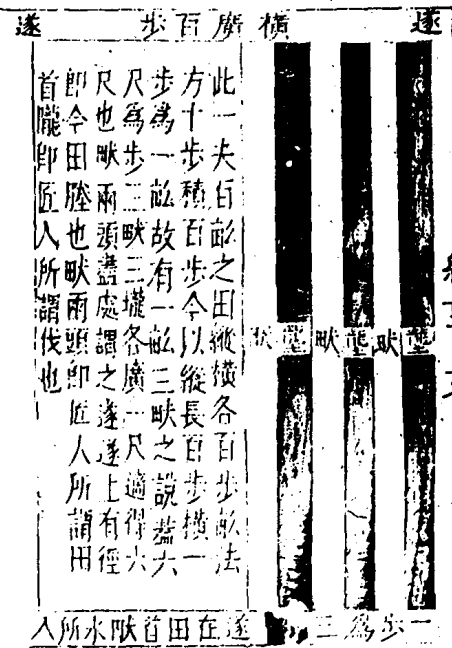 遂
橫廣百步
遂
壟
畎
壟
畎
壟
此一夫百畝之田縱橫各百步畝法
方十步積百步今以縱長百步橫一
步爲一畝故有一畝三畎之說葢六
尺爲步三畎三壠各廣一尺適得六
尺也畎兩頭盡處謂之遂遂上有徑
即今田塍也畎兩頭即匠人所謂田
首隴即匠人所謂伐也
一步爲三
遂在田首畎水所入